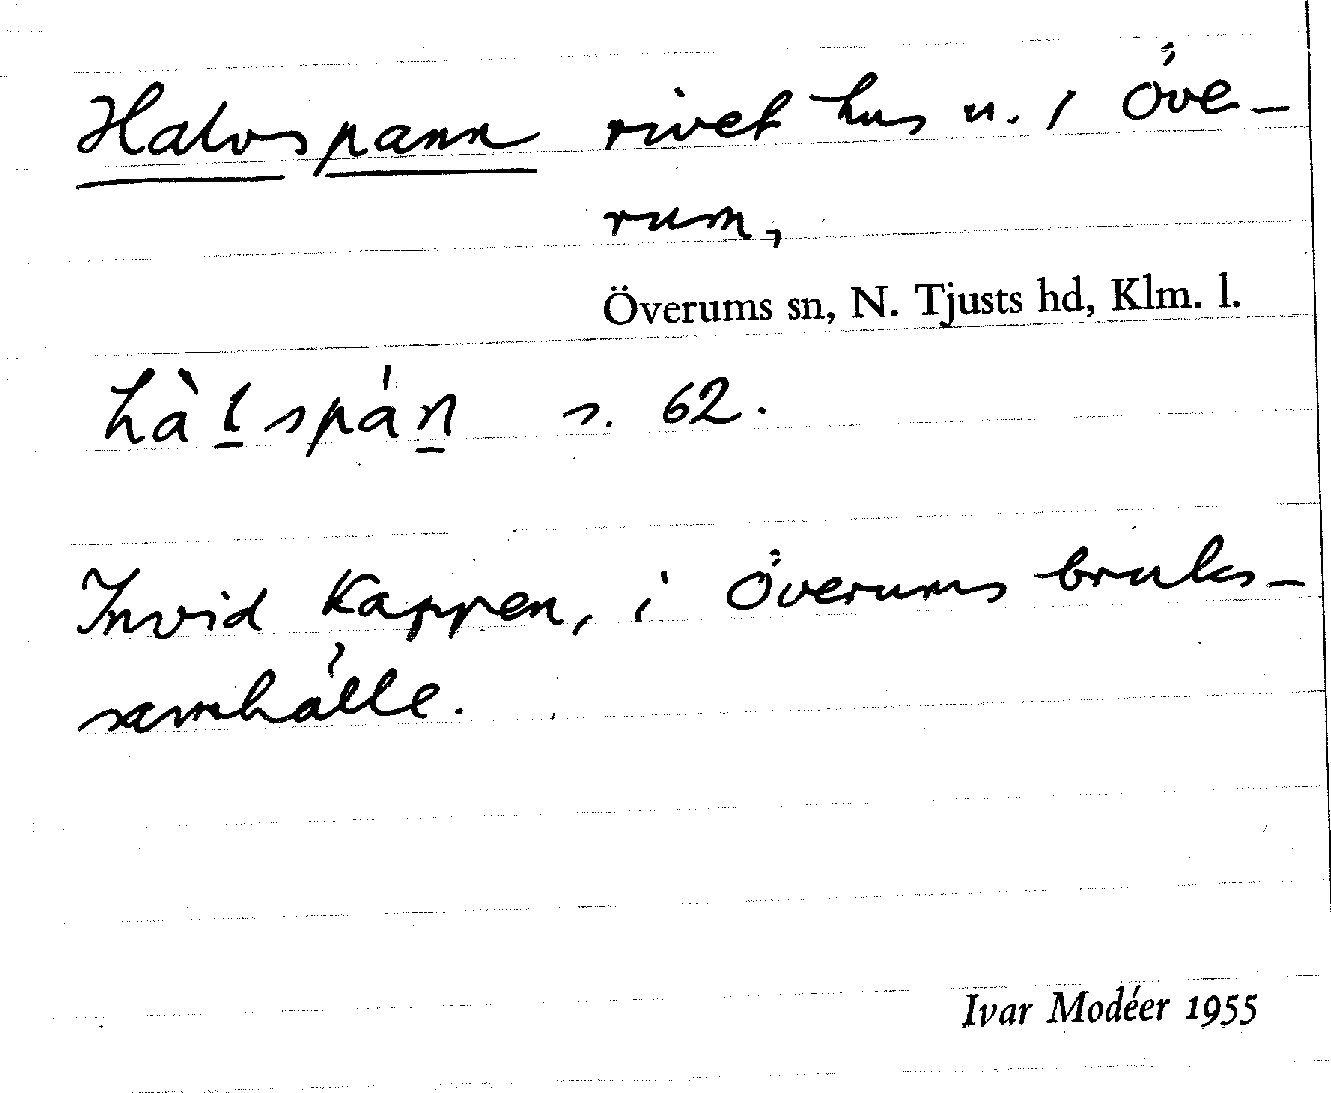 Halvspann rivet hus u. / Öve-
rum,
Överums sn, N. Tjusts hd, Klm. l.
hàl̠spáṉ s. 62.
Invid Kappen, i Överums bruks-
samhälle.
Ivar Modéer 1955